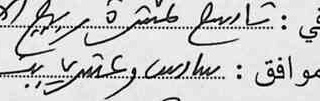 في : تاسع عشرة ربيع
موافق : سادس وعشرين